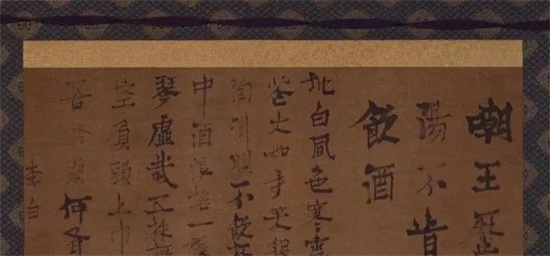 嘲王歷
陽不肯
飲酒
地白風色寒雪
花大如手笑殺
陶淵明不飲杯
中酒浪撫一張
琴虛栽五株
空負頭上巾
吾於爾何有
李白